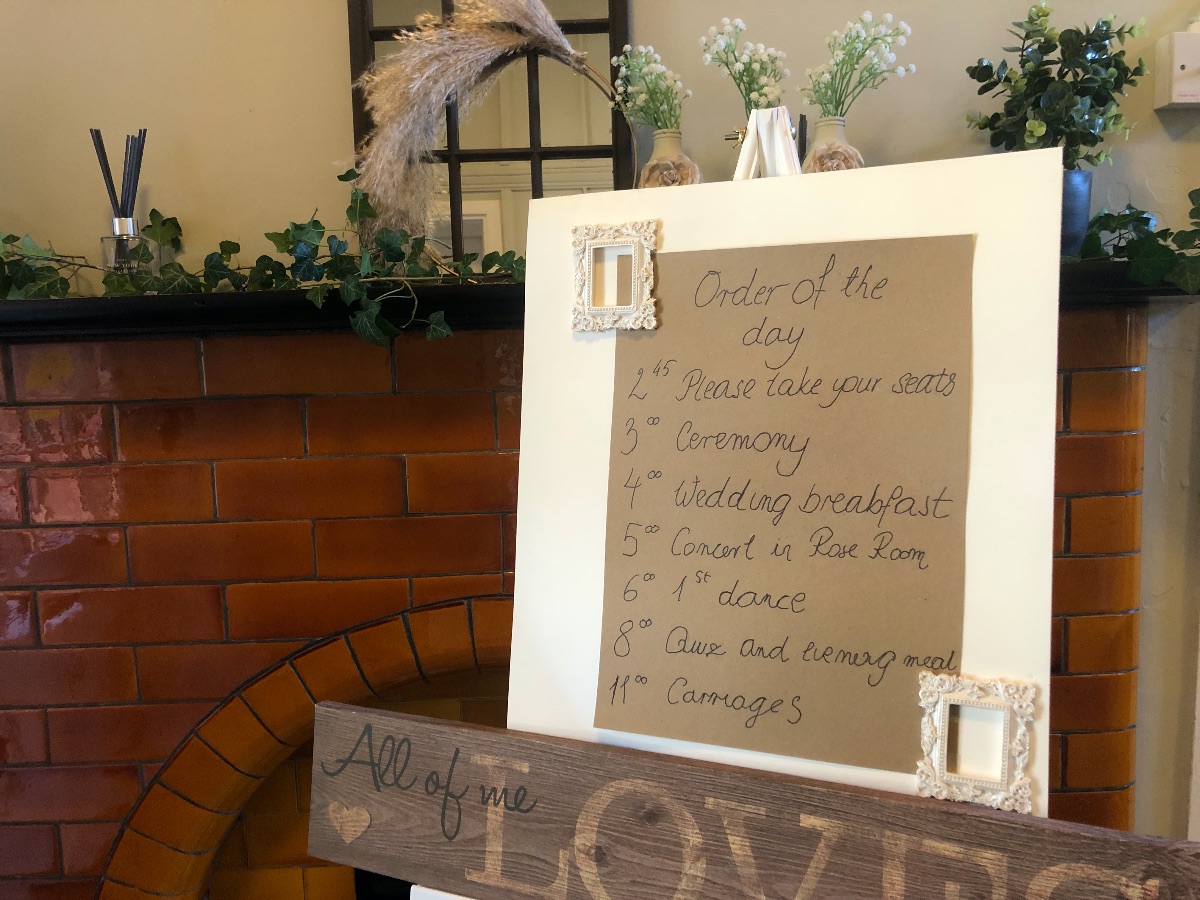 Order of the
day
2⁴⁵ Please take your seats
3⁰⁰ Ceremony
4⁰⁰ Wedding breakfast
5⁰⁰ Concert in Rose Room
6⁰⁰ 1st dance
8⁰⁰ Quiz and evening meal
11⁰⁰ Carriages
All of me
LOVES